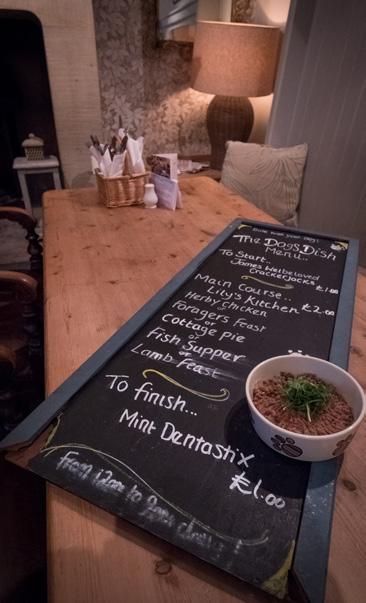 Dine with your Dog!
The DOGS DISH
Menu...
To Start..
James Wellbeloved
CrackerJacks £1.00
Main Course..
Lily's Kitchen £2.00
Herby Chicken
or
Foragers Feast
or
Cottage Pie
or
Fish Supper
or
Lamb Feast
To finish...
Mint Dentastix
£1.00
From 12pm to 9pm daily!